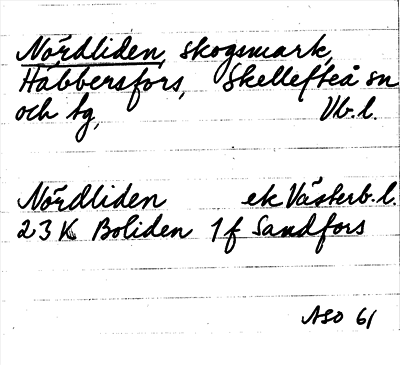 Nördliden, skogsmark,
Häbbersfors, Skellefteå sn
och tg, Vb.l.
Nördliden ek Västerb.l.
23 K Boliden 1f Sandfors
ASO 61